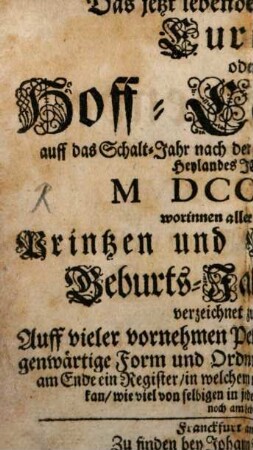 Das jetzt lebende
Eur
ode
Hoff-
auff das Schalt-Jahr nach der
Heylandes J
M DCC
worinnen aller
Printzen und
Geburts-Ta
verzeichnet z
Auff vieler vornehmen Pe
genwärtige Form und Ordn
am Ende ein Register/in welchem
kan/wie viel von selbigen in
noch am
Franckfurt a
Zu finden bey Joha